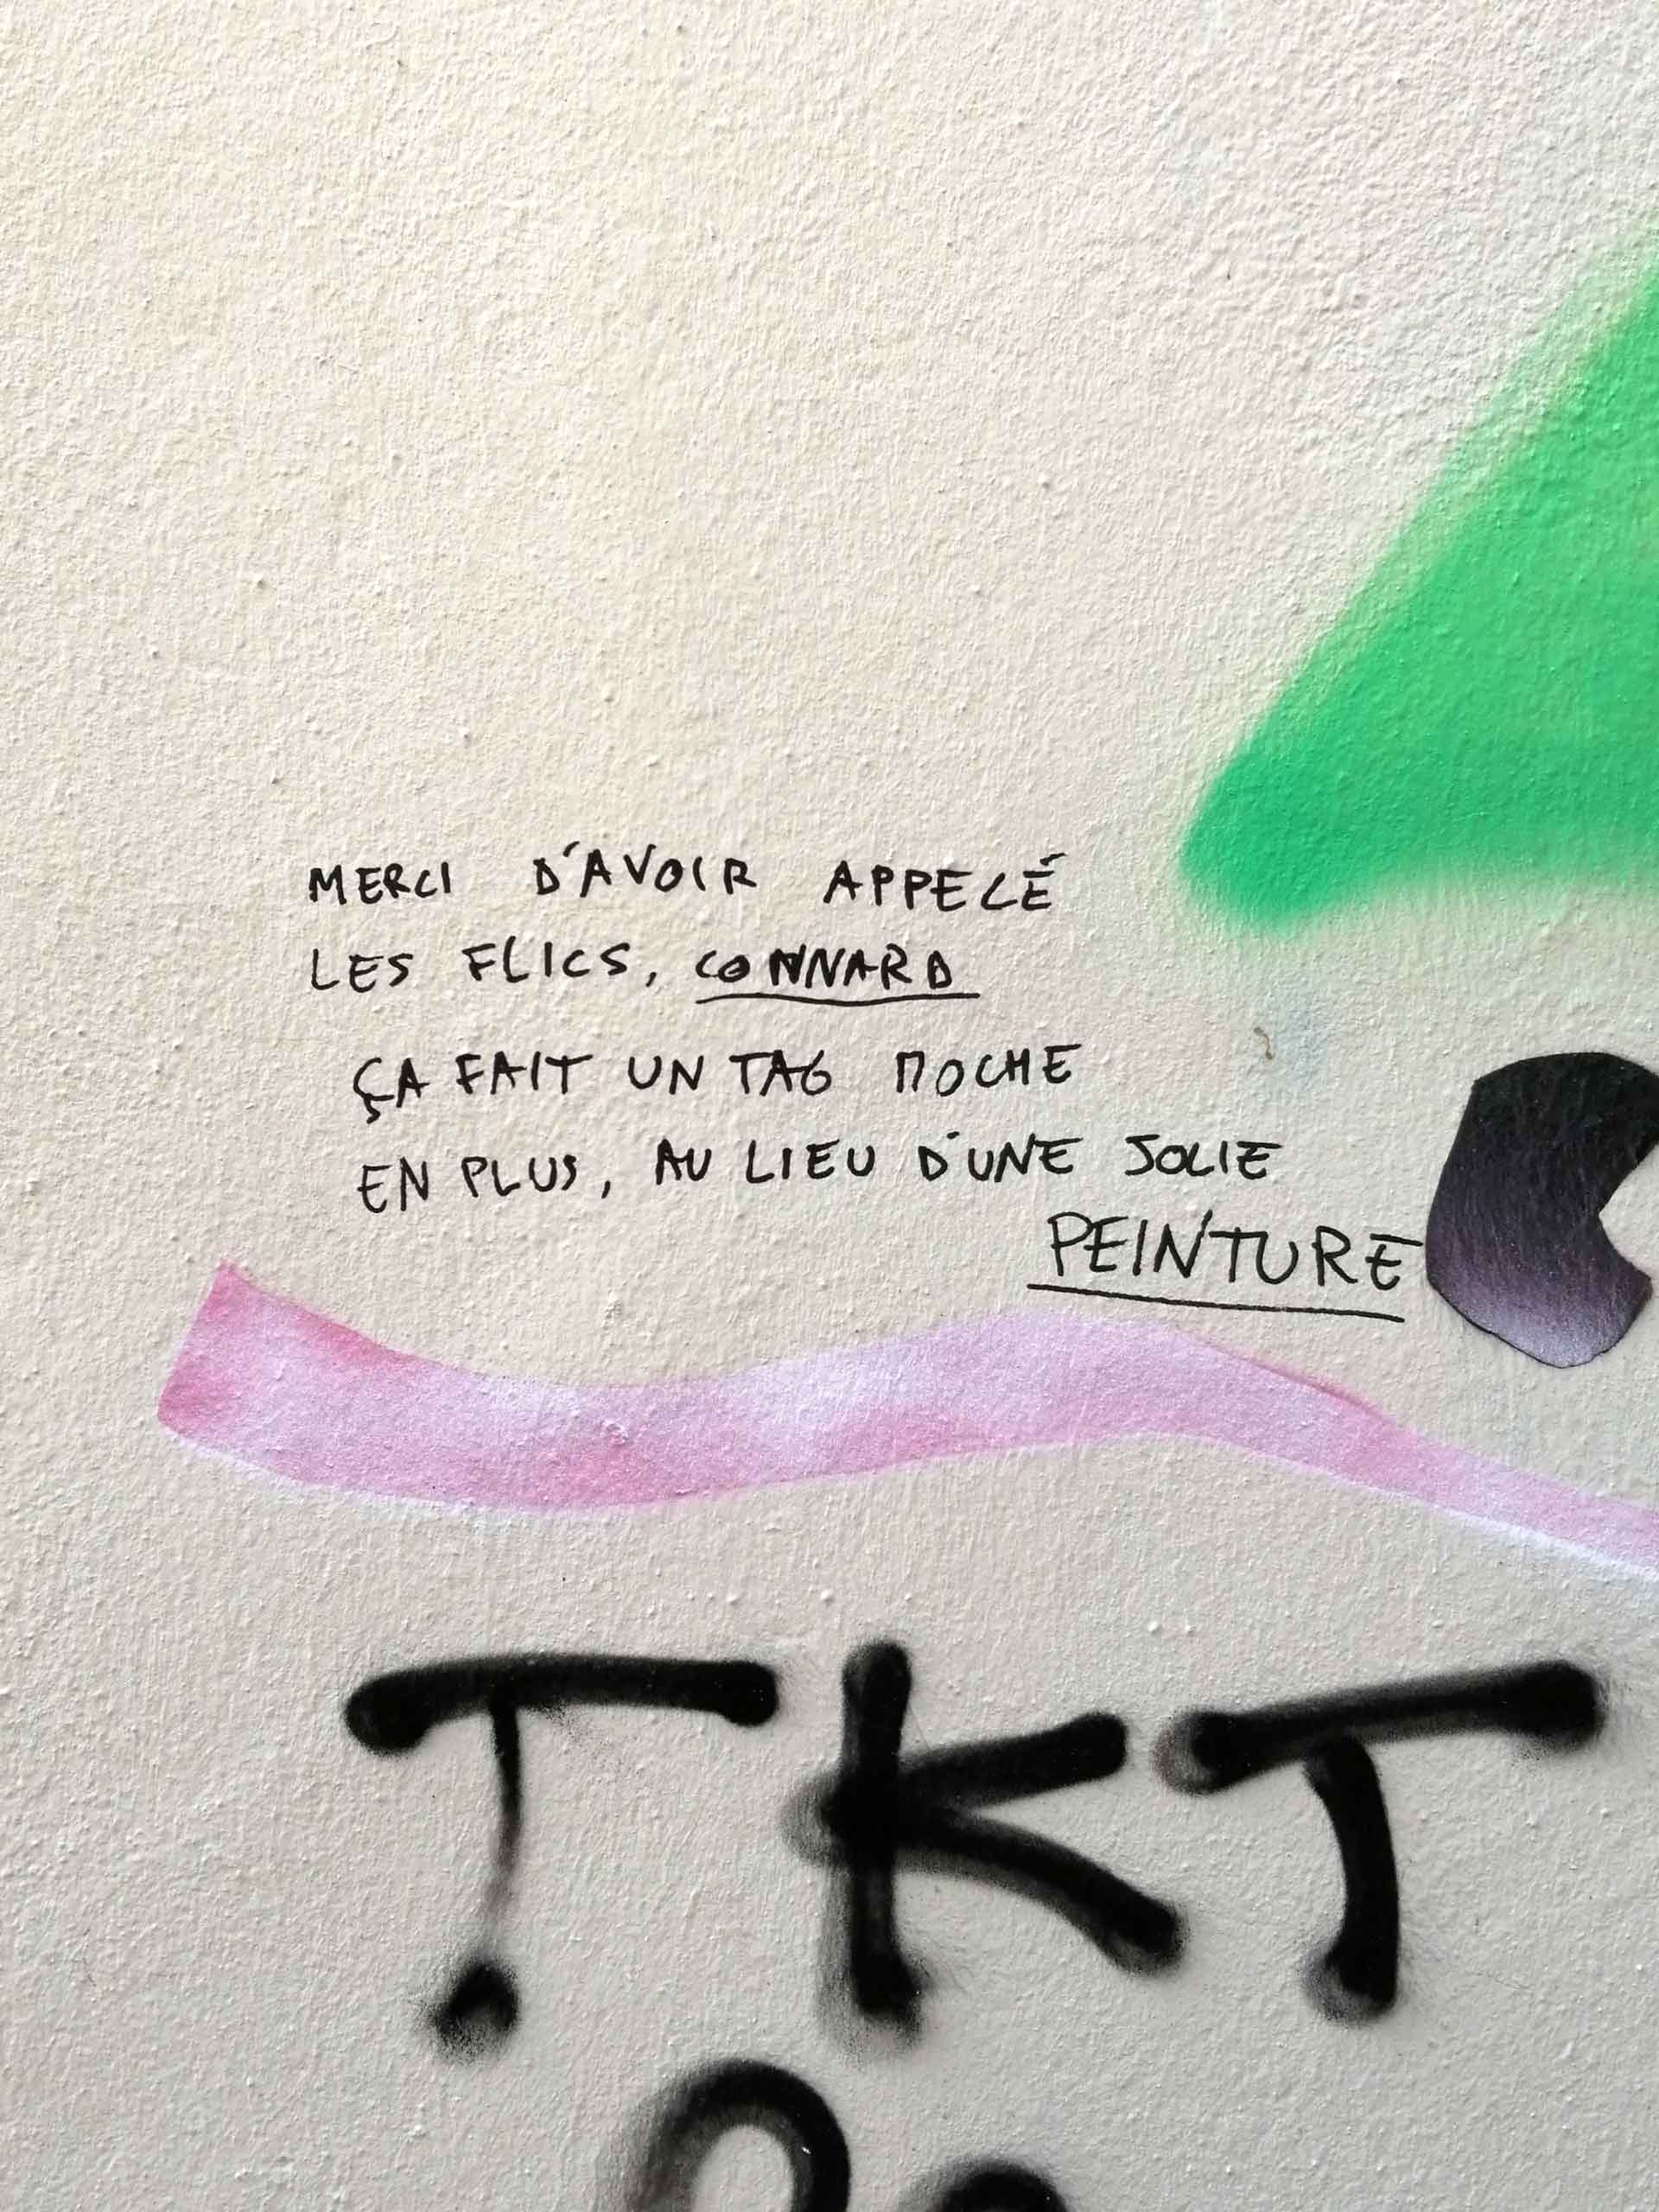 MERCI D'AVOIR APPELÉ
LES FLICS, CONNARD
ÇA FAIT UN TAG MOCHE
EN PLUS, AU LIEU D'UNE JOLIE
PEINTURE
TKT